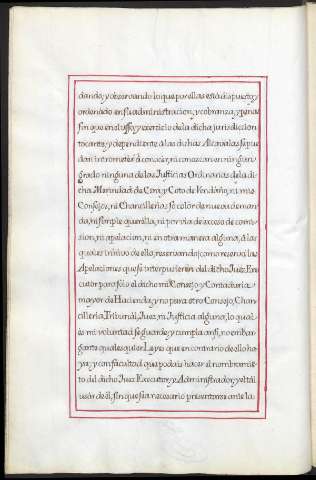 dando, y observando lo que por ellas está dispuesto, y
ordenado en su administracion, y cobranza, y pena
sin que en el uso, y exercicio de la dicha jurisdicion
tocante, y dependiente a las dichas Alcavalas se pue
dan intrometer à conocer, ni conozcan en ningun
grado ninguna de las Justicias Ordinarias de la di
cha Merindad de Cera, y Coto de Verdoño, ni mis
Consejos, ni Chancillerias so color de nueva deman
da, ni simple querella, ni por via de exceso de comi
sion, ni apelacion, ni en otra manera alguna, à las
quales inhivo de ello, reservando, como reservo las
Apelaciones que se interpusieren del dicho Juez Exe
cutor para sólo el dicho mi Consejo y Contaduria
mayor de Hacienda, y no para otro Consejo, Chan
cilleria, Tribunal, Juez, ni Justicia alguna, lo qual
es mi voluntad se guarde, y cumpla assi, no embar
gante qualesquier Leyes que en contrario de ello ha
ya, y con facultad que podais hacer el nombramien
to del dicho Juez Executor, y Administrador, y el tal
usar de él, sin que sea necesario presentarse ante la